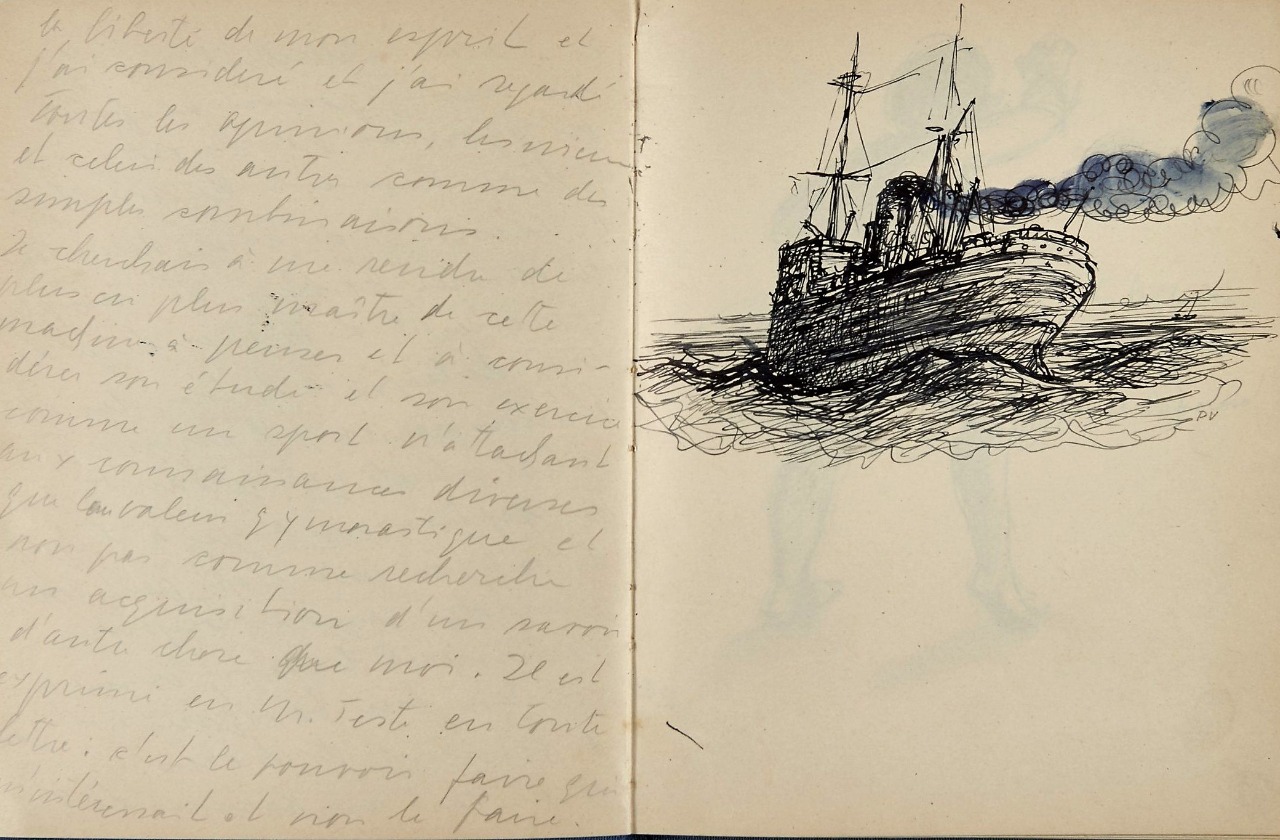 la liberté de mon esprit et
j'ai considéré et j'ai regardé
toutes les opinions, les miennes
et celles des autres comme des
simples combinaisons.
Je cherchais à me rendre de
plus en plus maître de cette
machine à penser et à consi-
dérer son étude et son exercice
comme un sport n'attachant
aux connaissances diverses
que leur valeur gymnastique et
non pas comme recherche
un acquisition d'un savoir
d'autre chose que moi. Il est
exprimé en M. Teste en toute
lettre : c'est le pouvoir faire qui
m'intéressait et non le faire.
PV